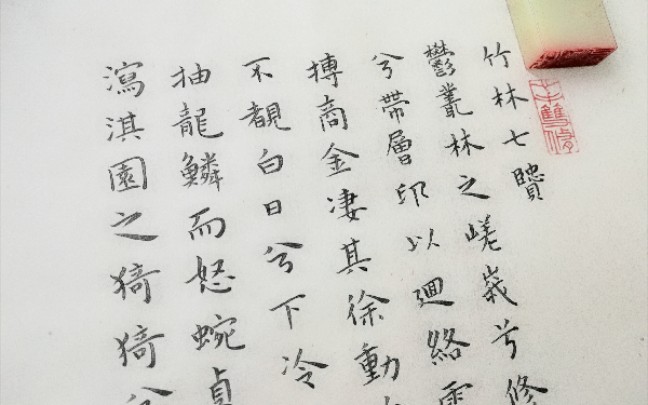 竹林七
鬱叢林之嵯峩兮修
兮帶層邱以迴絡
搏商金凄其徐動
不覩白日兮下冷
抽龍鱗而怒蜿貞
瀉淇園之猗猗兮